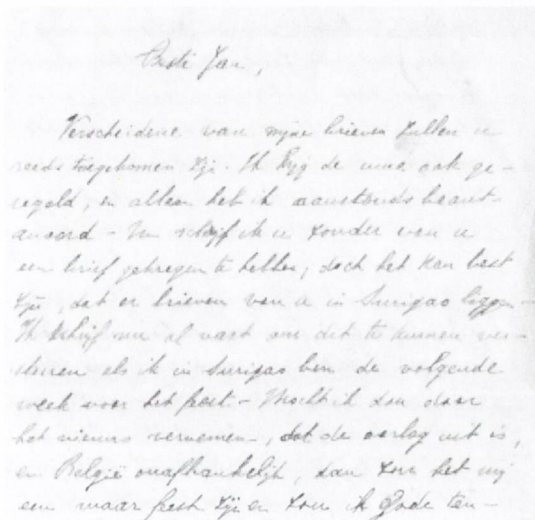 Beste Jan,
Verscheidene van mijne brieven zullen u
reeds toegekomen zijn. Ik krijg de uwe ook ge-
regeld, en alleen heb ik aanstonds beant-
woord - Nu schrijf ik u zonder van u
een brief gekregen te hebben; doch het kan best
zijn, dat er brieven van u in Surigao liggen -
Ik schrijf nu al vast om dit te kunnen ver-
sturen als ik in Surigao ben de volgende
week voor het feest. - Mocht ik dan daar
het nieuws vernemen, dat de oorlog uit is,
en België onafhankelijk, dan zou het mij
een waar feest zijn en zou ik Gode ten-